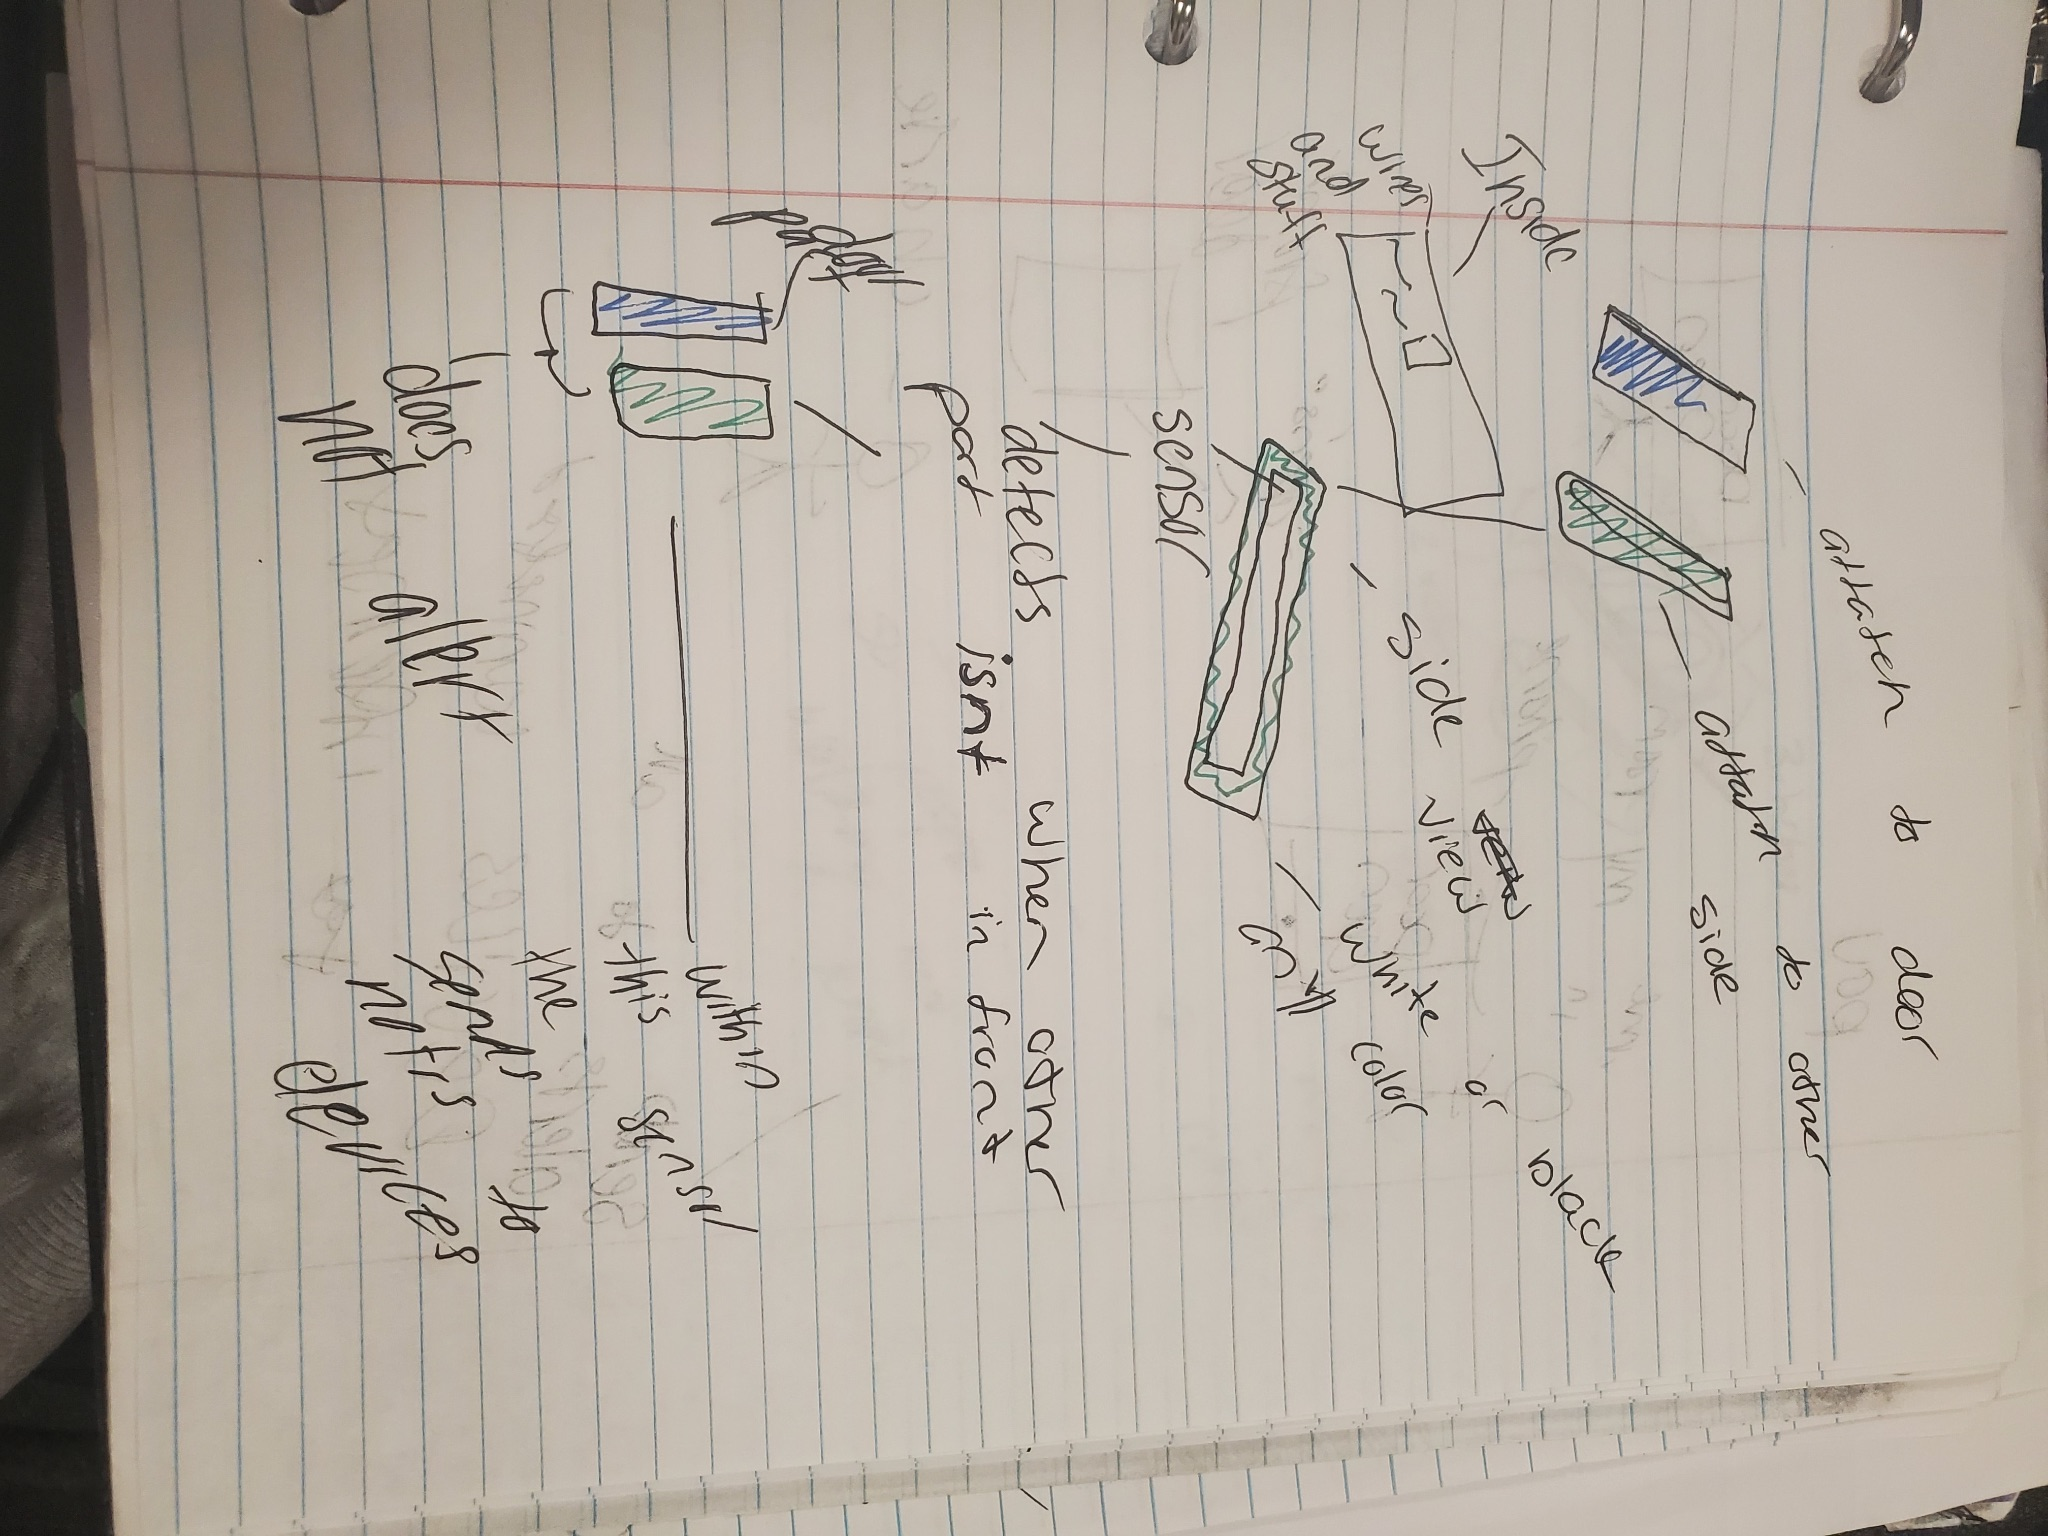 attatch to door
attatch to other
side
Inside
wires
and
stuff
side view
or black
white color
only
sensor
detects when other
part isnt in front
within
this sensor
the
sends
notifs to
devices
does
not alert